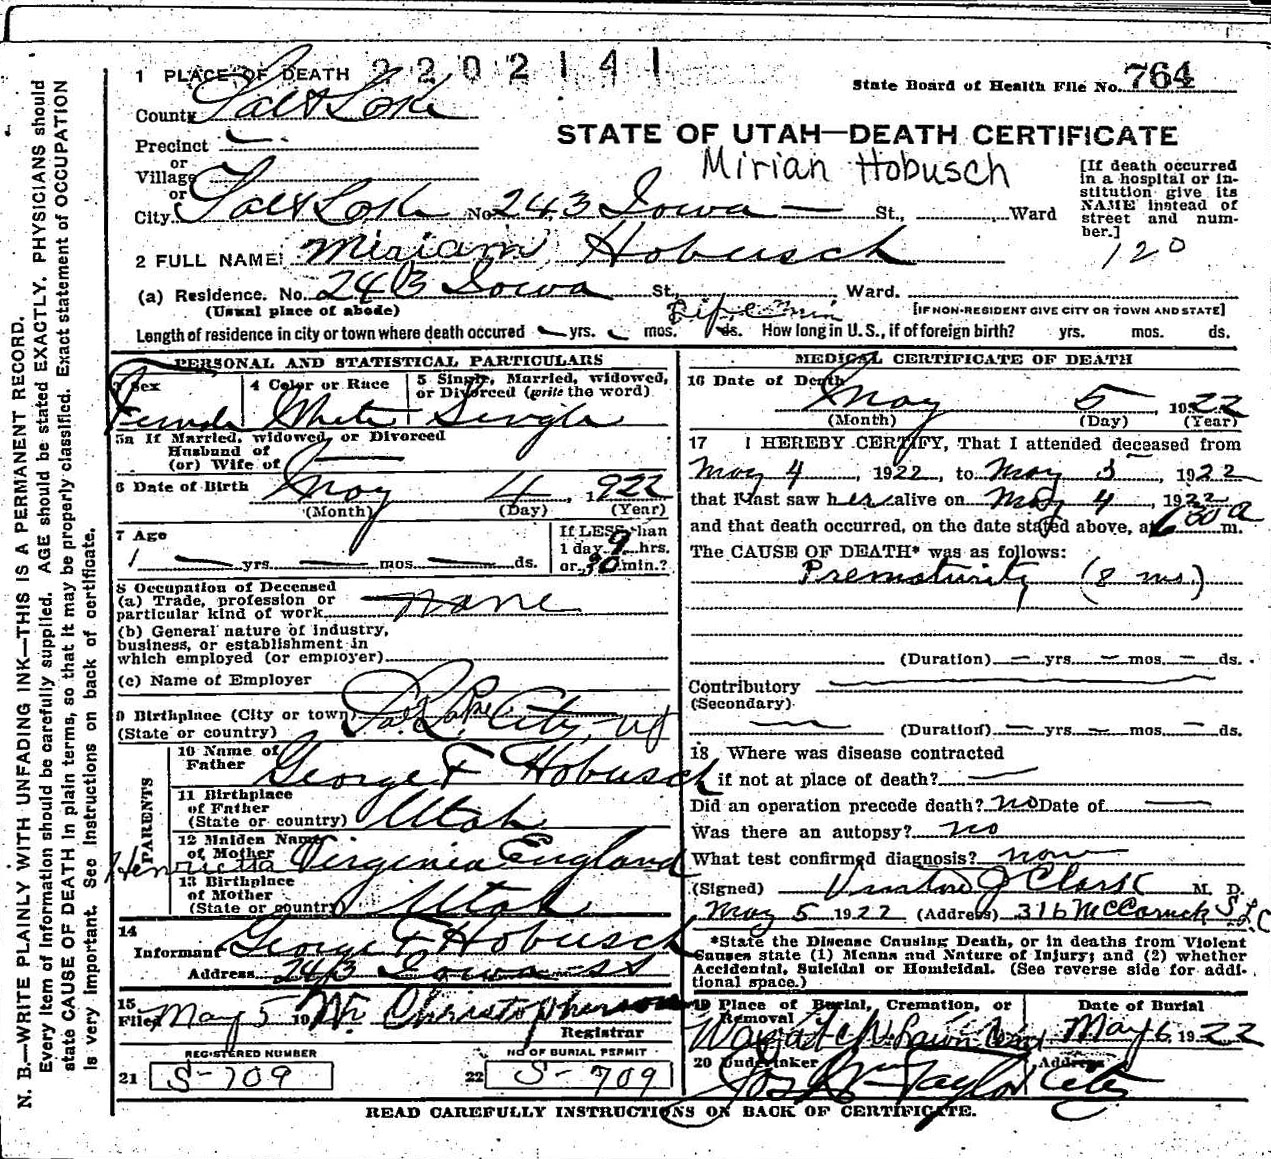 N. B.—WRITE PLAINLY WITH UNFADING INK—THIS IS A PERMANENT RECORD.
Every item of information should be carefully supplied. AGE should be stated EXACTLY. PHYSICIANS should
state CAUSE OF DEATH in plain terms, so that it may be properly classified. Exact statement of OCCUPATION
is very important. See instructions on back of certificate.
1 PLACE OF DEATH 2202141
State Board of Health File No. 764
County Salt Lake
STATE OF UTAH—DEATH CERTIFICATE
Precinct
or
Village
or
Mirian Hobusch
[If death occurred
in a hospital or in-
stitution give its
NAME instead of
street and num-
ber.]
City Salt Lake No. 243 Iowa — St., Ward
120
2 FULL NAME Miriam Hobusch
(a) Residence. No. 243 Iowa St., Ward.
(Usual place of abode) [IF NON-RESIDENT GIVE CITY OR TOWN AND STATE]
Length of residence in city or town where death occured yrs. mos. ds. How long in U. S., if of foreign birth? yrs. mos. ds.
PERSONAL AND STATISTICAL PARTICULARS
3 Sex Female
4 Color or Race White
5 Single, Married, widowed,
or Divorced (write the word)
Single
5a If Married, widowed, or Divorced
Husband of
(or) Wife of —
6 Date of Birth May 4, 1922
(Month) (Day) (Year)
7 Age
— yrs. — mos. — ds.
If LESS than
1 day 9 hrs.
or 30 min.?
8 Occupation of Deceased
(a) Trade, profession or
particular kind of work none
(b) General nature of industry,
business, or establishment in
which employed (or employer)
(c) Name of Employer
9 Birthplace (City or town) Salt Lake City, Ut
(State or country)
PARENTS
10 Name of
Father George F Hobusch
11 Birthplace
of Father
(State or country) Utah
12 Maiden Name
of Mother Henrietta Virginia England
13 Birthplace
of Mother
(State or country) Utah
14
Informant George F Hobusch
Address 243 Iowa St
15
Filed May 5 19 Christopherson
Registrar
REGISTERED NUMBER
21 S-709
NO OF BURIAL PERMIT
22 S-709
MEDICAL CERTIFICATE OF DEATH
16 Date of Death
May 5, 1922
(Month) (Day) (Year)
17 I HEREBY CERTIFY, That I attended deceased from
May 4, 1922, to May 5, 1922
that I last saw her alive on May 4, 1922
and that death occurred, on the date stated above, at 6 30 a m.
The CAUSE OF DEATH* was as follows:
Prematurity (8 mo.)
(Duration) — yrs. — mos. — ds.
Contributory
(Secondary)
(Duration) — yrs. — mos. — ds.
18 Where was disease contracted
if not at place of death? —
Did an operation precede death? no Date of —
Was there an autopsy? no
What test confirmed diagnosis? none
(Signed) J Clark M. D.
May 5 1922 (Address) 316 McCornick S L C
*State the Disease Causing Death, or in deaths from Violent
Causes state (1) Means and Nature of Injury; and (2) whether
Accidental, Suicidal or Homicidal. (See reverse side for addi-
tional space.)
19 Place of Burial, Cremation, or
Removal
Date of Burial
Wasatch Lawn May 6 1922
20 Undertaker Address
Jos Wm Taylor City
READ CAREFULLY INSTRUCTIONS ON BACK OF CERTIFICATE.